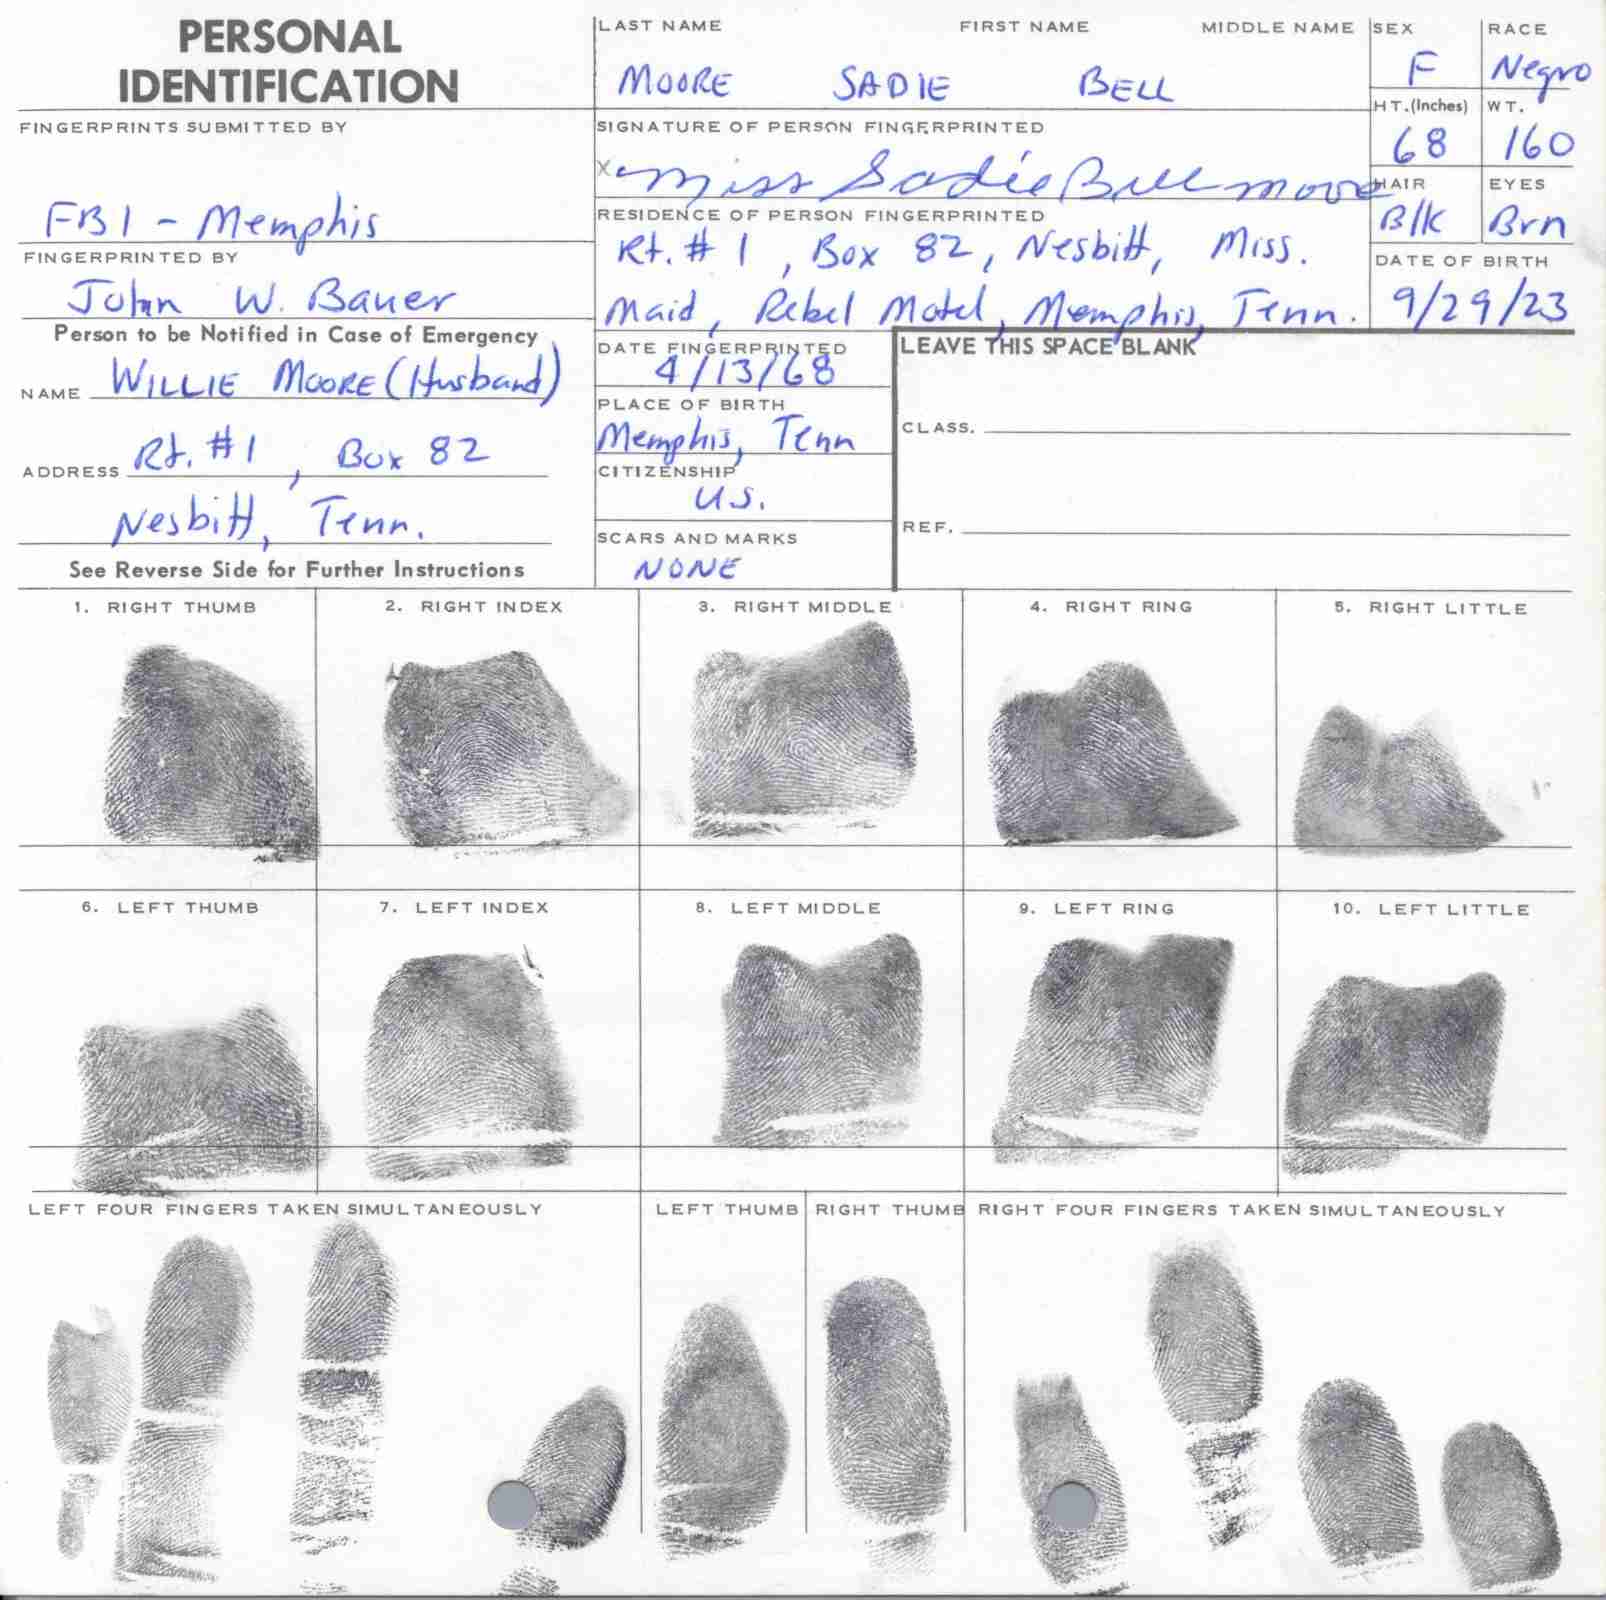 PERSONAL
IDENTIFICATION
FINGERPRINTS SUBMITTED BY
FBI - Memphis
FINGERPRINTED BY
John W. Bauer
Person to be Notified in Case of Emergency
NAME WILLIE MOORE (Husband)
ADDRESS Rt. #1, Box 82
Nesbitt, Tenn.
See Reverse Side for Further Instructions
LAST NAME FIRST NAME MIDDLE NAME
MOORE SADIE BELL
SIGNATURE OF PERSON FINGERPRINTED
x Miss Sadie Bell Moore
RESIDENCE OF PERSON FINGERPRINTED
Rt. # 1, Box 82, Nesbitt, Miss.
Maid, Rebel Motel, Memphis, Tenn.
SEX RACE
F Negro
HT.(Inches) WT.
68 160
HAIR EYES
Blk Brn
DATE OF BIRTH
9/29/23
DATE FINGERPRINTED
4/13/68
PLACE OF BIRTH
Memphis, Tenn
CITIZENSHIP
U.S.
SCARS AND MARKS
NONE
LEAVE THIS SPACE BLANK
CLASS.
REF.
1. RIGHT THUMB 2. RIGHT INDEX 3. RIGHT MIDDLE 4. RIGHT RING 5. RIGHT LITTLE
6. LEFT THUMB 7. LEFT INDEX 8. LEFT MIDDLE 9. LEFT RING 10. LEFT LITTLE
LEFT FOUR FINGERS TAKEN SIMULTANEOUSLY LEFT THUMB RIGHT THUMB RIGHT FOUR FINGERS TAKEN SIMULTANEOUSLY